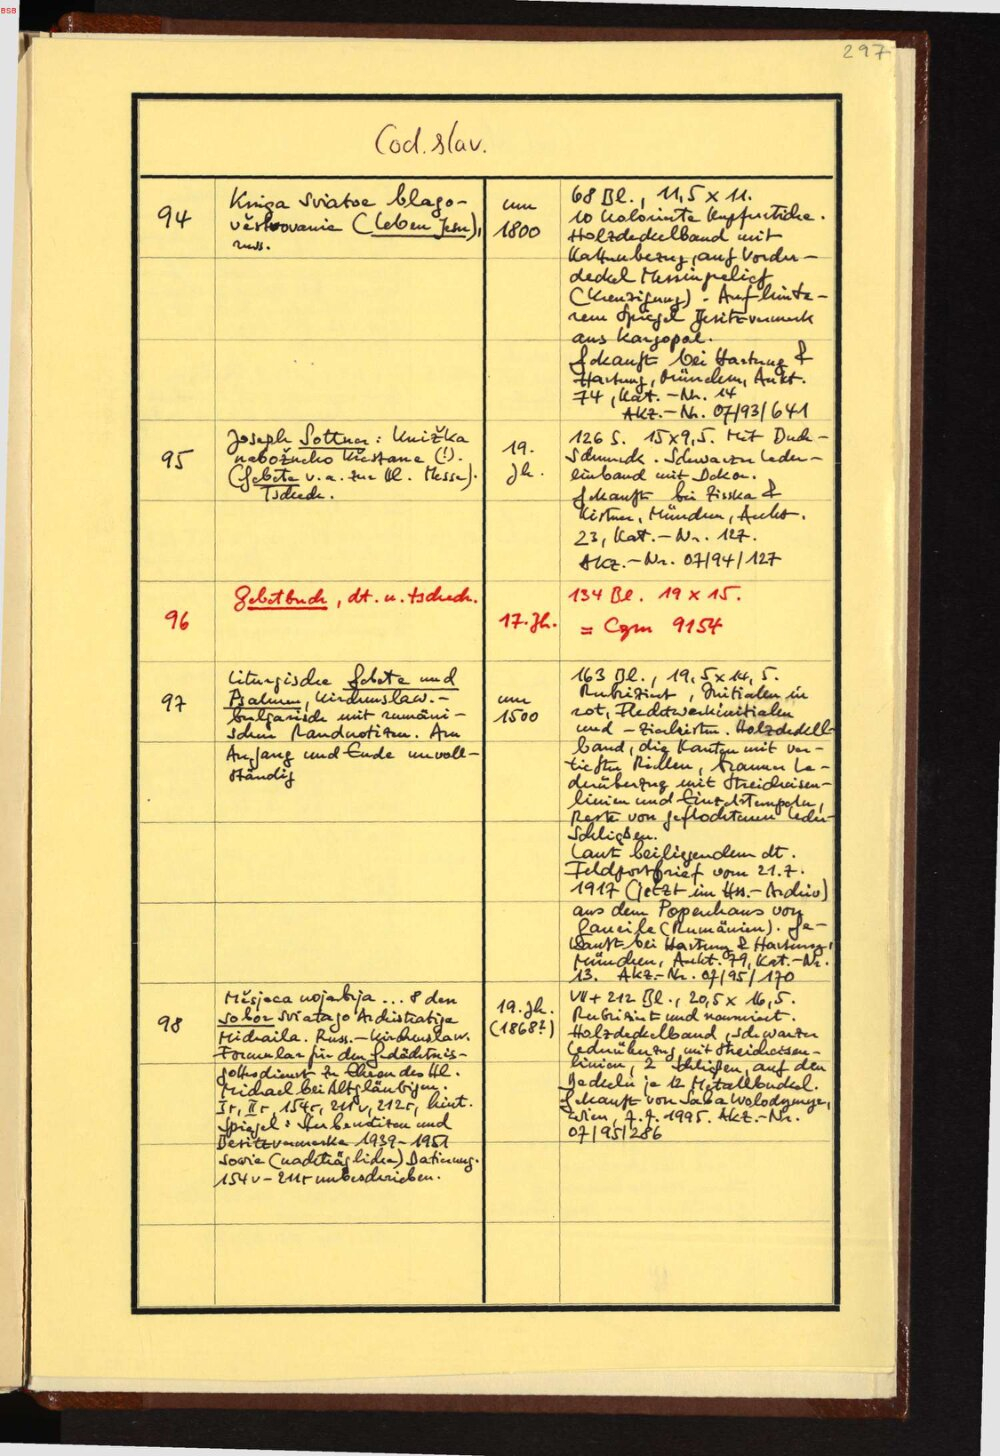 BSB
297
Cod. slav.
94
Kniga sviatoe blago-
věstvovanie (Leben Jesu),
russ.
um
1800
68 Bl., 11,5 x 11.
10 kolorierte Kupferstiche.
Holzdeckelband mit
Kattunbezug, auf Vorder-
deckel Messingrelief
(Kreuzigung). Auf hinte-
rem Spiegel Besitzvermerk
aus Kargopol.
Gekauft bei Hartung &
Hartung, München, Aukt.
74, Kat.-Nr. 14
Akz.-Nr. 07/93/641
95
Joseph Sottner: Knižka
nábožného Křestana (!).
(Gebete v. a. zur Hl. Messe).
Tschech.
19.
Jh.
126 S. 15x9,5. Mit Buch-
schmuck. Schwarzer Leder-
einband mit Dekor.
Gekauft bei Zisska &
Kistner, München, Aukt.
23, Kat.-Nr. 127.
Akz.-Nr. 07/94/127
96
Gebetbuch, dt. u. tschech.
17. Jh.
134 Bl. 19 x 15.
= Cgm 9154
97
Liturgische Gebete und
Psalmen, Kirchenslaw.-
bulgarisch mit rumäni-
schen Randnotizen. Am
Anfang und Ende unvoll-
ständig
um
1500
163 Bl., 19,5 x 14,5.
Rubriziert, Initialen in
rot, Flechtwerkinitialen
und -zierleisten. Holzdeckel-
band, die Kanten mit ver-
tieften Rillen, brauner Le-
derüberzug mit Streicheisen-
linien und Einzelstempeln,
Reste von geflochtenen Leder-
schließen.
Laut beiliegendem dt.
Feldpostbrief vom 21.7.
1917 (jetzt im Hss.-Archiv)
aus dem Popenhaus von
(Rumänien). Ge-
kauft bei Hartung & Hartung,
München, Aukt. 79, Kat.-Nr.
13. Akz.-Nr. 07/95/170
98
Měsjaca nojabrja ... 8 den
sobor sviatago Archistratiga
Michaila. Russ.-Kirchenslaw.
Formular für den Gedächtnis-
gottesdienst zu Ehren des Hl.
Michael bei Altgläubigen.
Ir, IIr, 154r, 211v, 212r, hint.
Spiegel: Schreibernotizen und
Besitzvermerke 1939-1951
sowie (nachträgliche) Datierung.
154v-211r unbeschrieben.
19. Jh.
(1868?)
VII + 212 Bl., 20,5 x 16,5.
Rubriziert und normiert.
Holzdeckelband, schwarzer
Lederüberzug mit Streicheisen-
linien, 2 Schließen, auf den
Deckeln je 12 Metallbuckel.
Gekauft von Sava
Wien, 7.7.1995. Akz.-Nr.
07/95/286